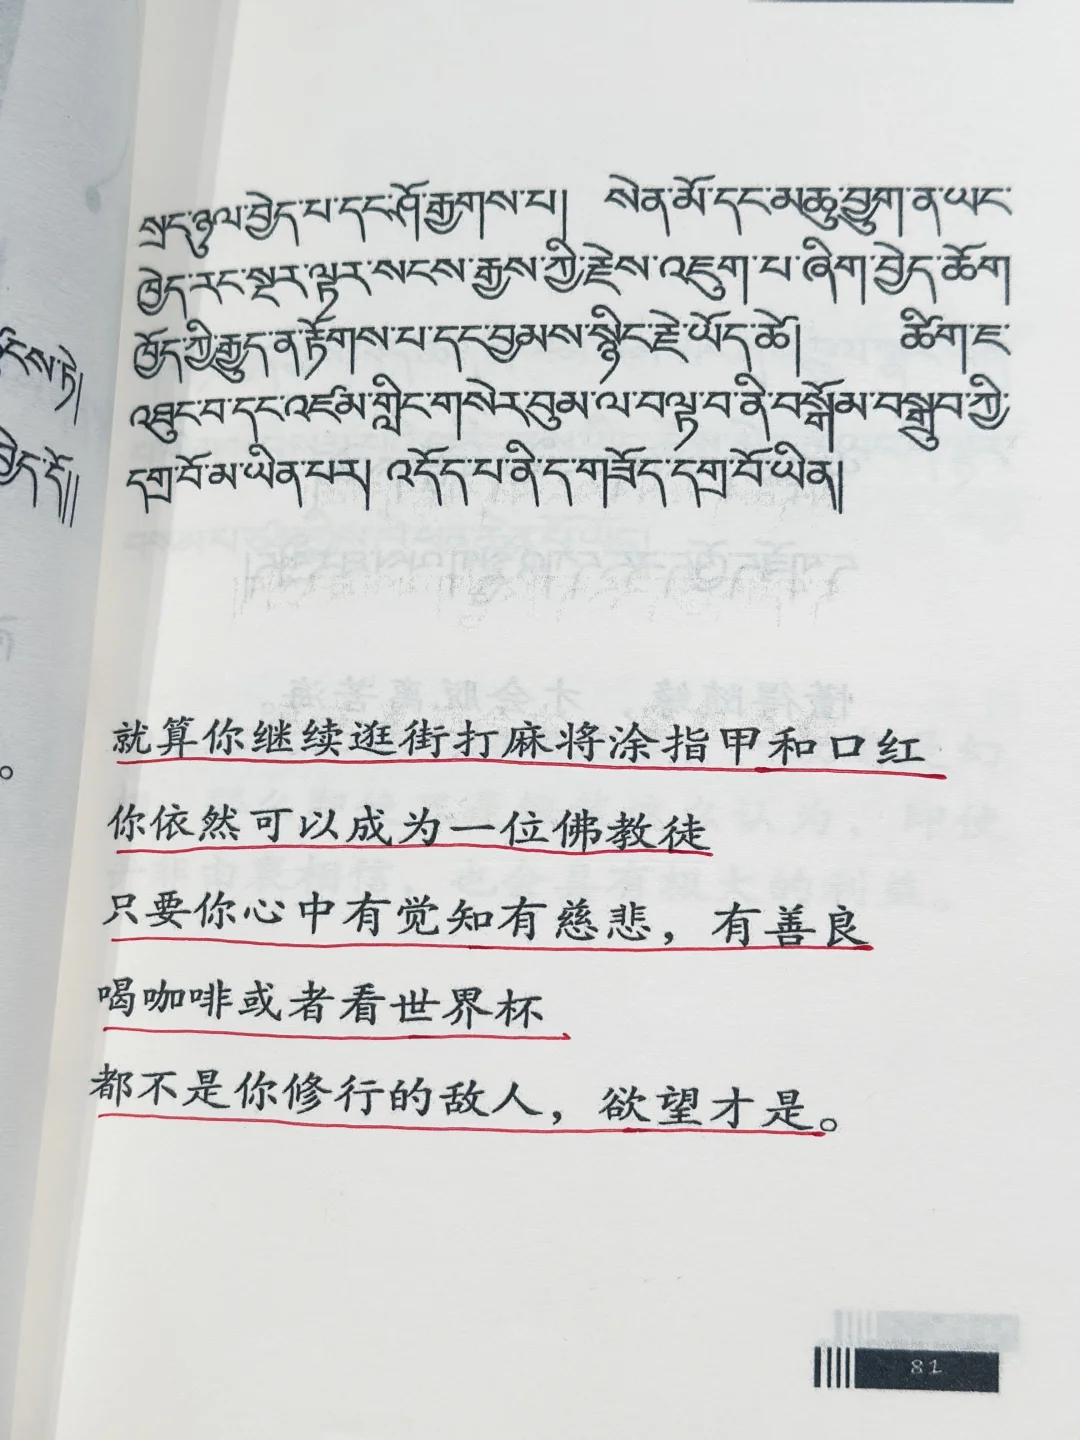 སྲང་ཉུལ་བྱེད་པ་དང་ཤོ་རྒྱགས་པ། སེན་མོ་དང་མཆུ་བྱུག་ན་ཡང་
ཁྱེད་རང་སྔར་ལྟར་སངས་རྒྱས་ཀྱི་རྗེས་འཇུག་པ་ཞིག་བྱེད་ཆོག
ཁྱོད་ཀྱི་རྒྱུད་ན་རྟོགས་པ་དང་བྱམས་སྙིང་རྗེ་ཡོད་ཚེ། ཚིག་ཇ་
འཐུང་བ་དང་འཛམ་གླིང་གསེར་བུམ་ལ་བལྟ་བ་ནི་བསྒོམ་བསྒྲུབ་ཀྱི་
དགྲ་བོ་མ་ཡིན་པར། འདོད་པ་ནི་ད་གཟོད་དགྲ་བོ་ཡིན།
就算你继续逛街打麻将涂指甲和口红
你依然可以成为一位佛教徒
只要你心中有觉知有慈悲，有善良
喝咖啡或者看世界杯
都不是你修行的敌人，欲望才是。
81